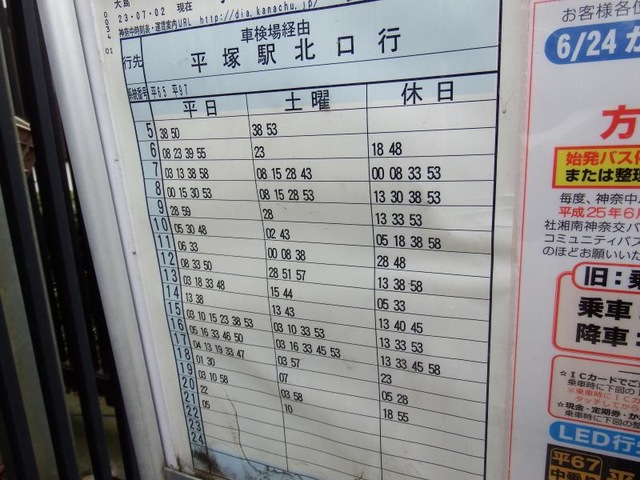 大島
23・07・02 現在
神奈中時刻表・運賃案内URL http://dia.kanachu.jp/
0034 01
行先 車検場経由
平塚駅北口行
系統番号 平65 平97
平日 土曜 休日
5 38 50 38 53
6 08 23 39 55 23 18 48
7 03 13 38 58 08 15 28 43 00 08 33 53
8 00 15 30 53 08 15 28 53 13 30 38 53
9 28 59 28 13 33 53
10 05 30 48 02 43 05 18 38 58
11 06 33 00 08 38 28 48
12 08 33 50 28 51 57 13 38 58
13 03 18 33 48 15 44 05 33
14 13 38 13 43 13 40 45
15 03 10 15 23 38 53 03 10 33 53 13 33 53
16 05 16 33 46 50 03 16 33 45 53 13 33 45 58
17 04 13 19 33 47 03 57 23
18 01 30 07 05 28
19 03 10 58 03 58 18 55
20 22 10
21 05
22
23
24
お客様各位
6/24か
方
始発バス停
または整理
毎度、神奈中
平成25年6月
社湘南神奈交バ
コミュニティバス
のほどお願いいた
旧:乗
乗車
降車
☆ICカードでご
乗車時に下図の
※乗車時にIC
タッチしてか
☆現金・定期券・か
乗車時に下図の整
LED行先
平67